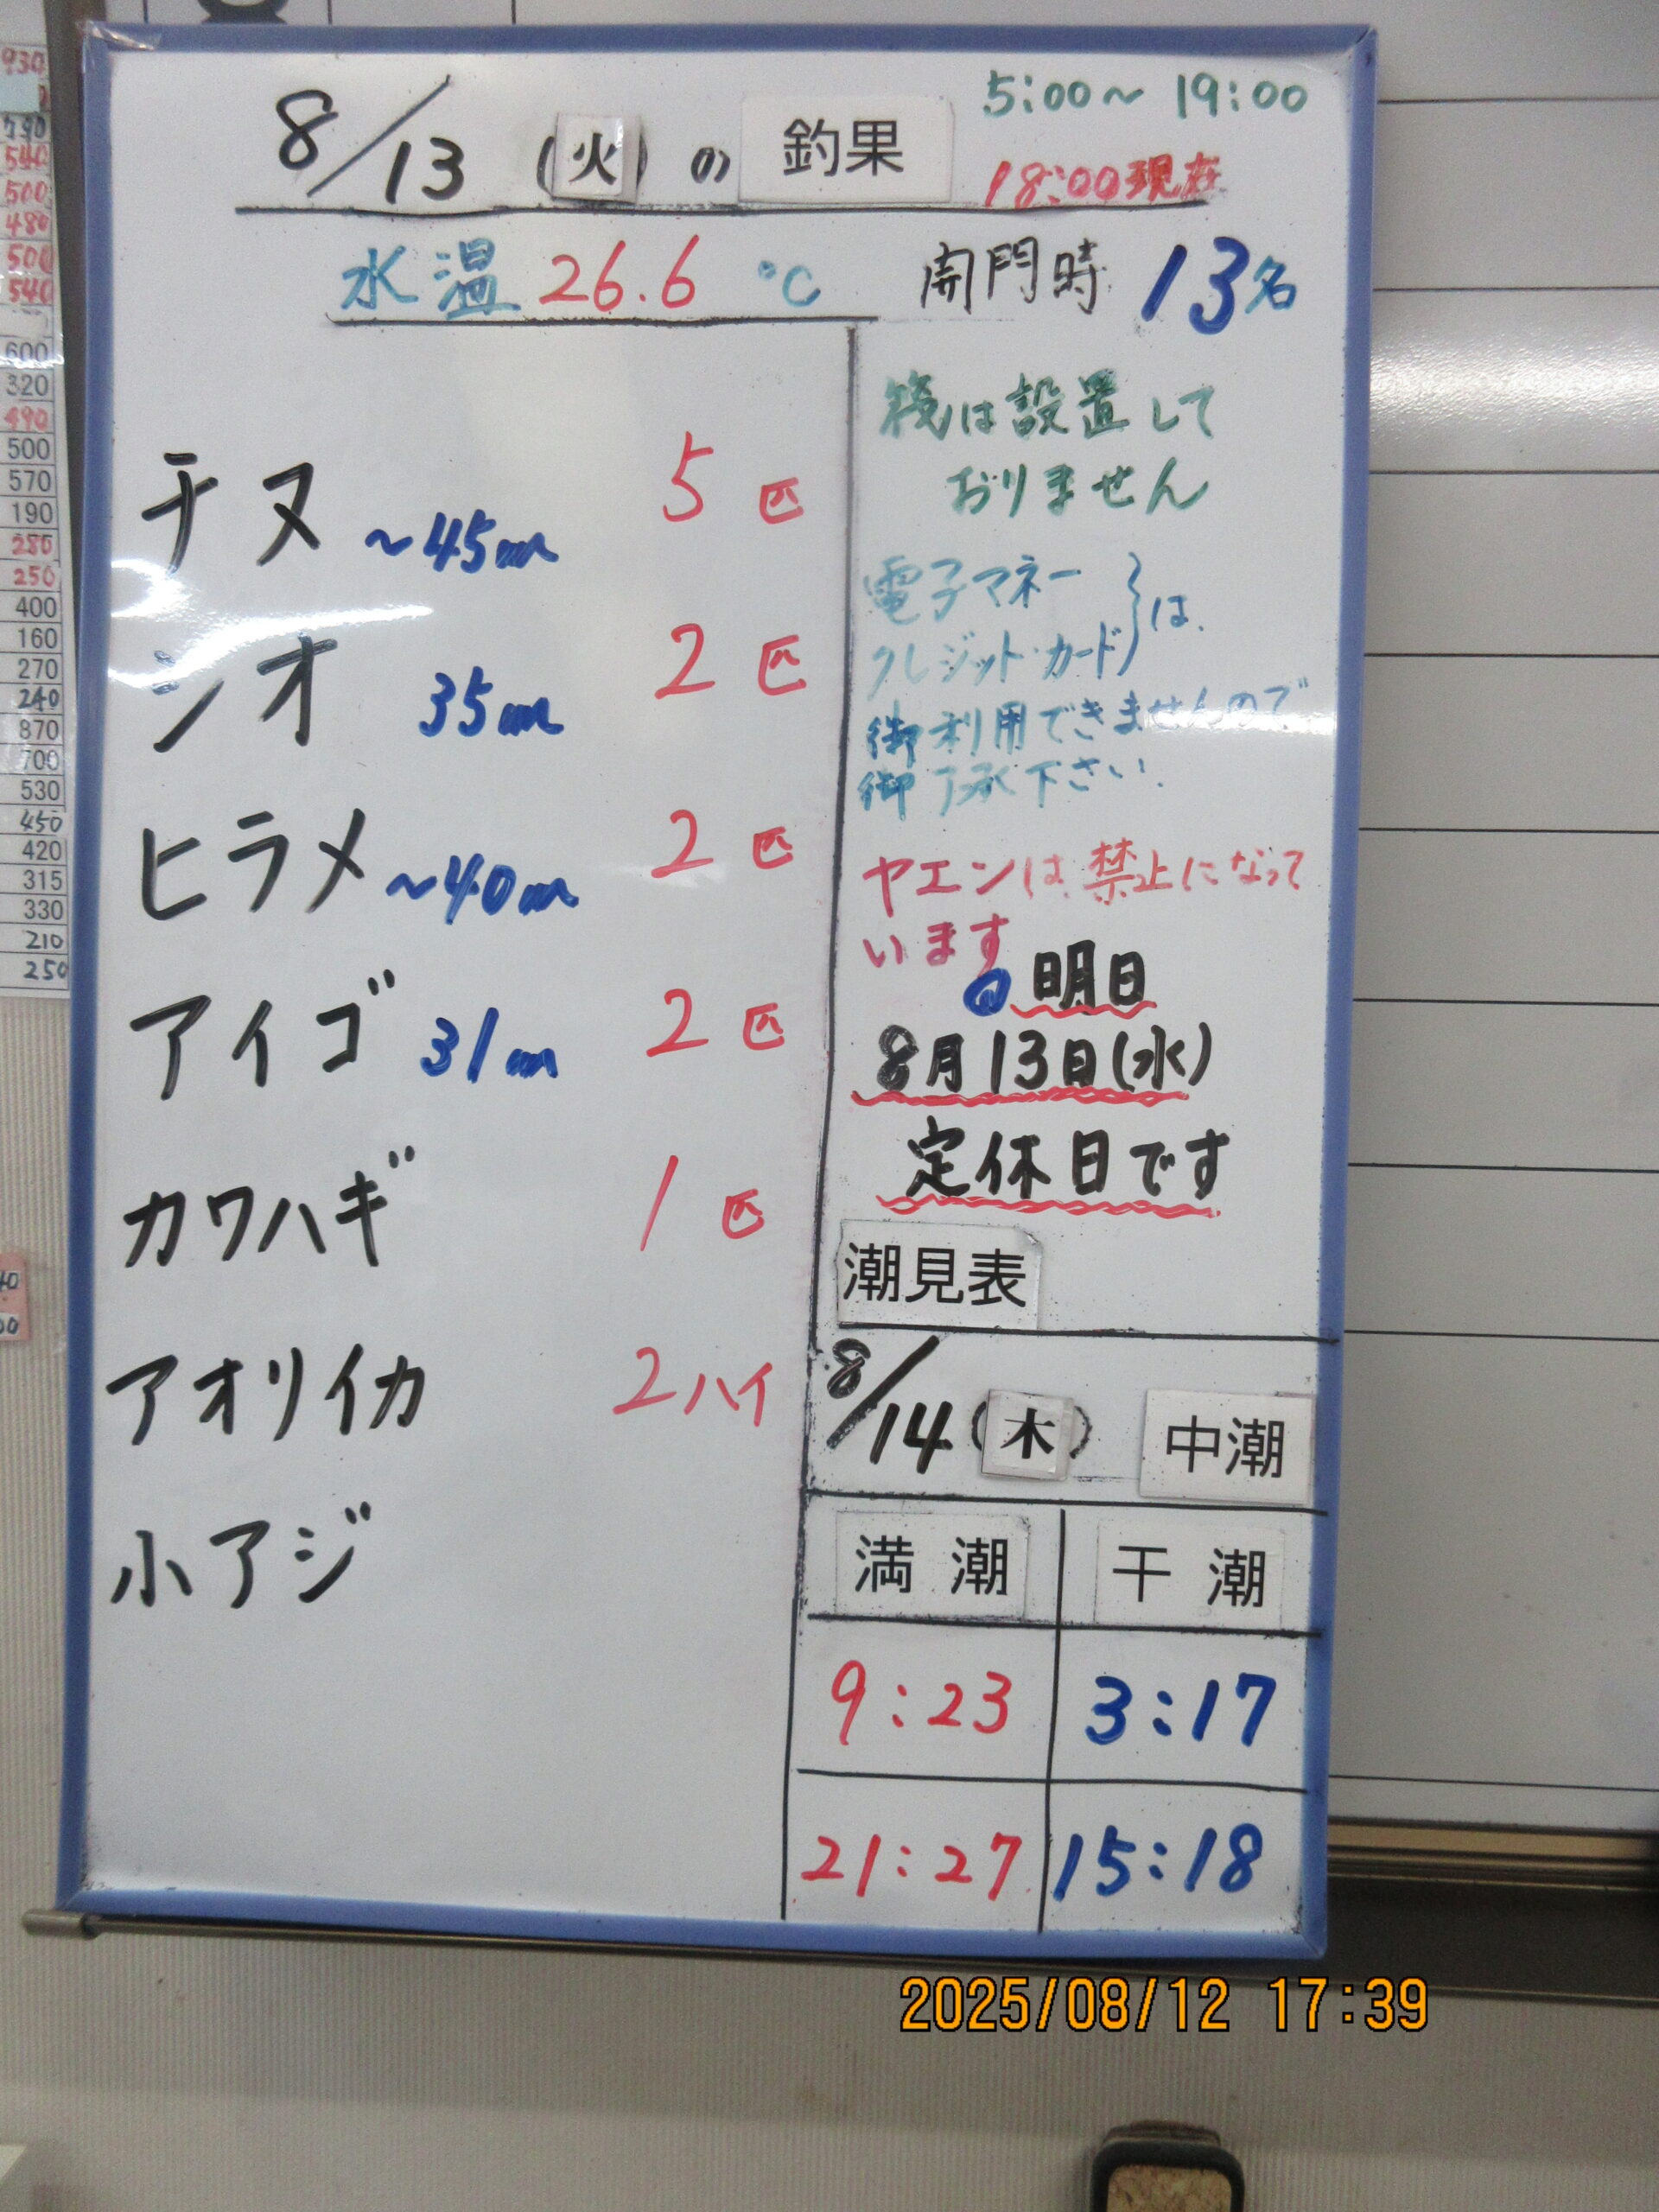 8/13 (火) の 釣果
5:00～19:00
18:00現在
水温 26.6 ℃
開門時 13名
チヌ ～45cm 5匹
シオ 35cm 2匹
ヒラメ ～40cm 2匹
アイゴ 31cm 2匹
カワハギ 1匹
アオリイカ 2ハイ
小アジ
筏は設置して
おりません
電子マネー
クレジット・カード}は
御利用できませんので
御了承下さい.
ヤエンは禁止になって
います
明日
8月13日(水)
定休日です
潮見表
8/14 (木) 中潮
満潮 干潮
9:23 3:17
21:27 15:18
930
790
540
500
480
500
540
600
320
490
500
570
190
280
250
400
160
270
240
870
700
530
450
420
315
330
210
250
2025/08/12 17:39